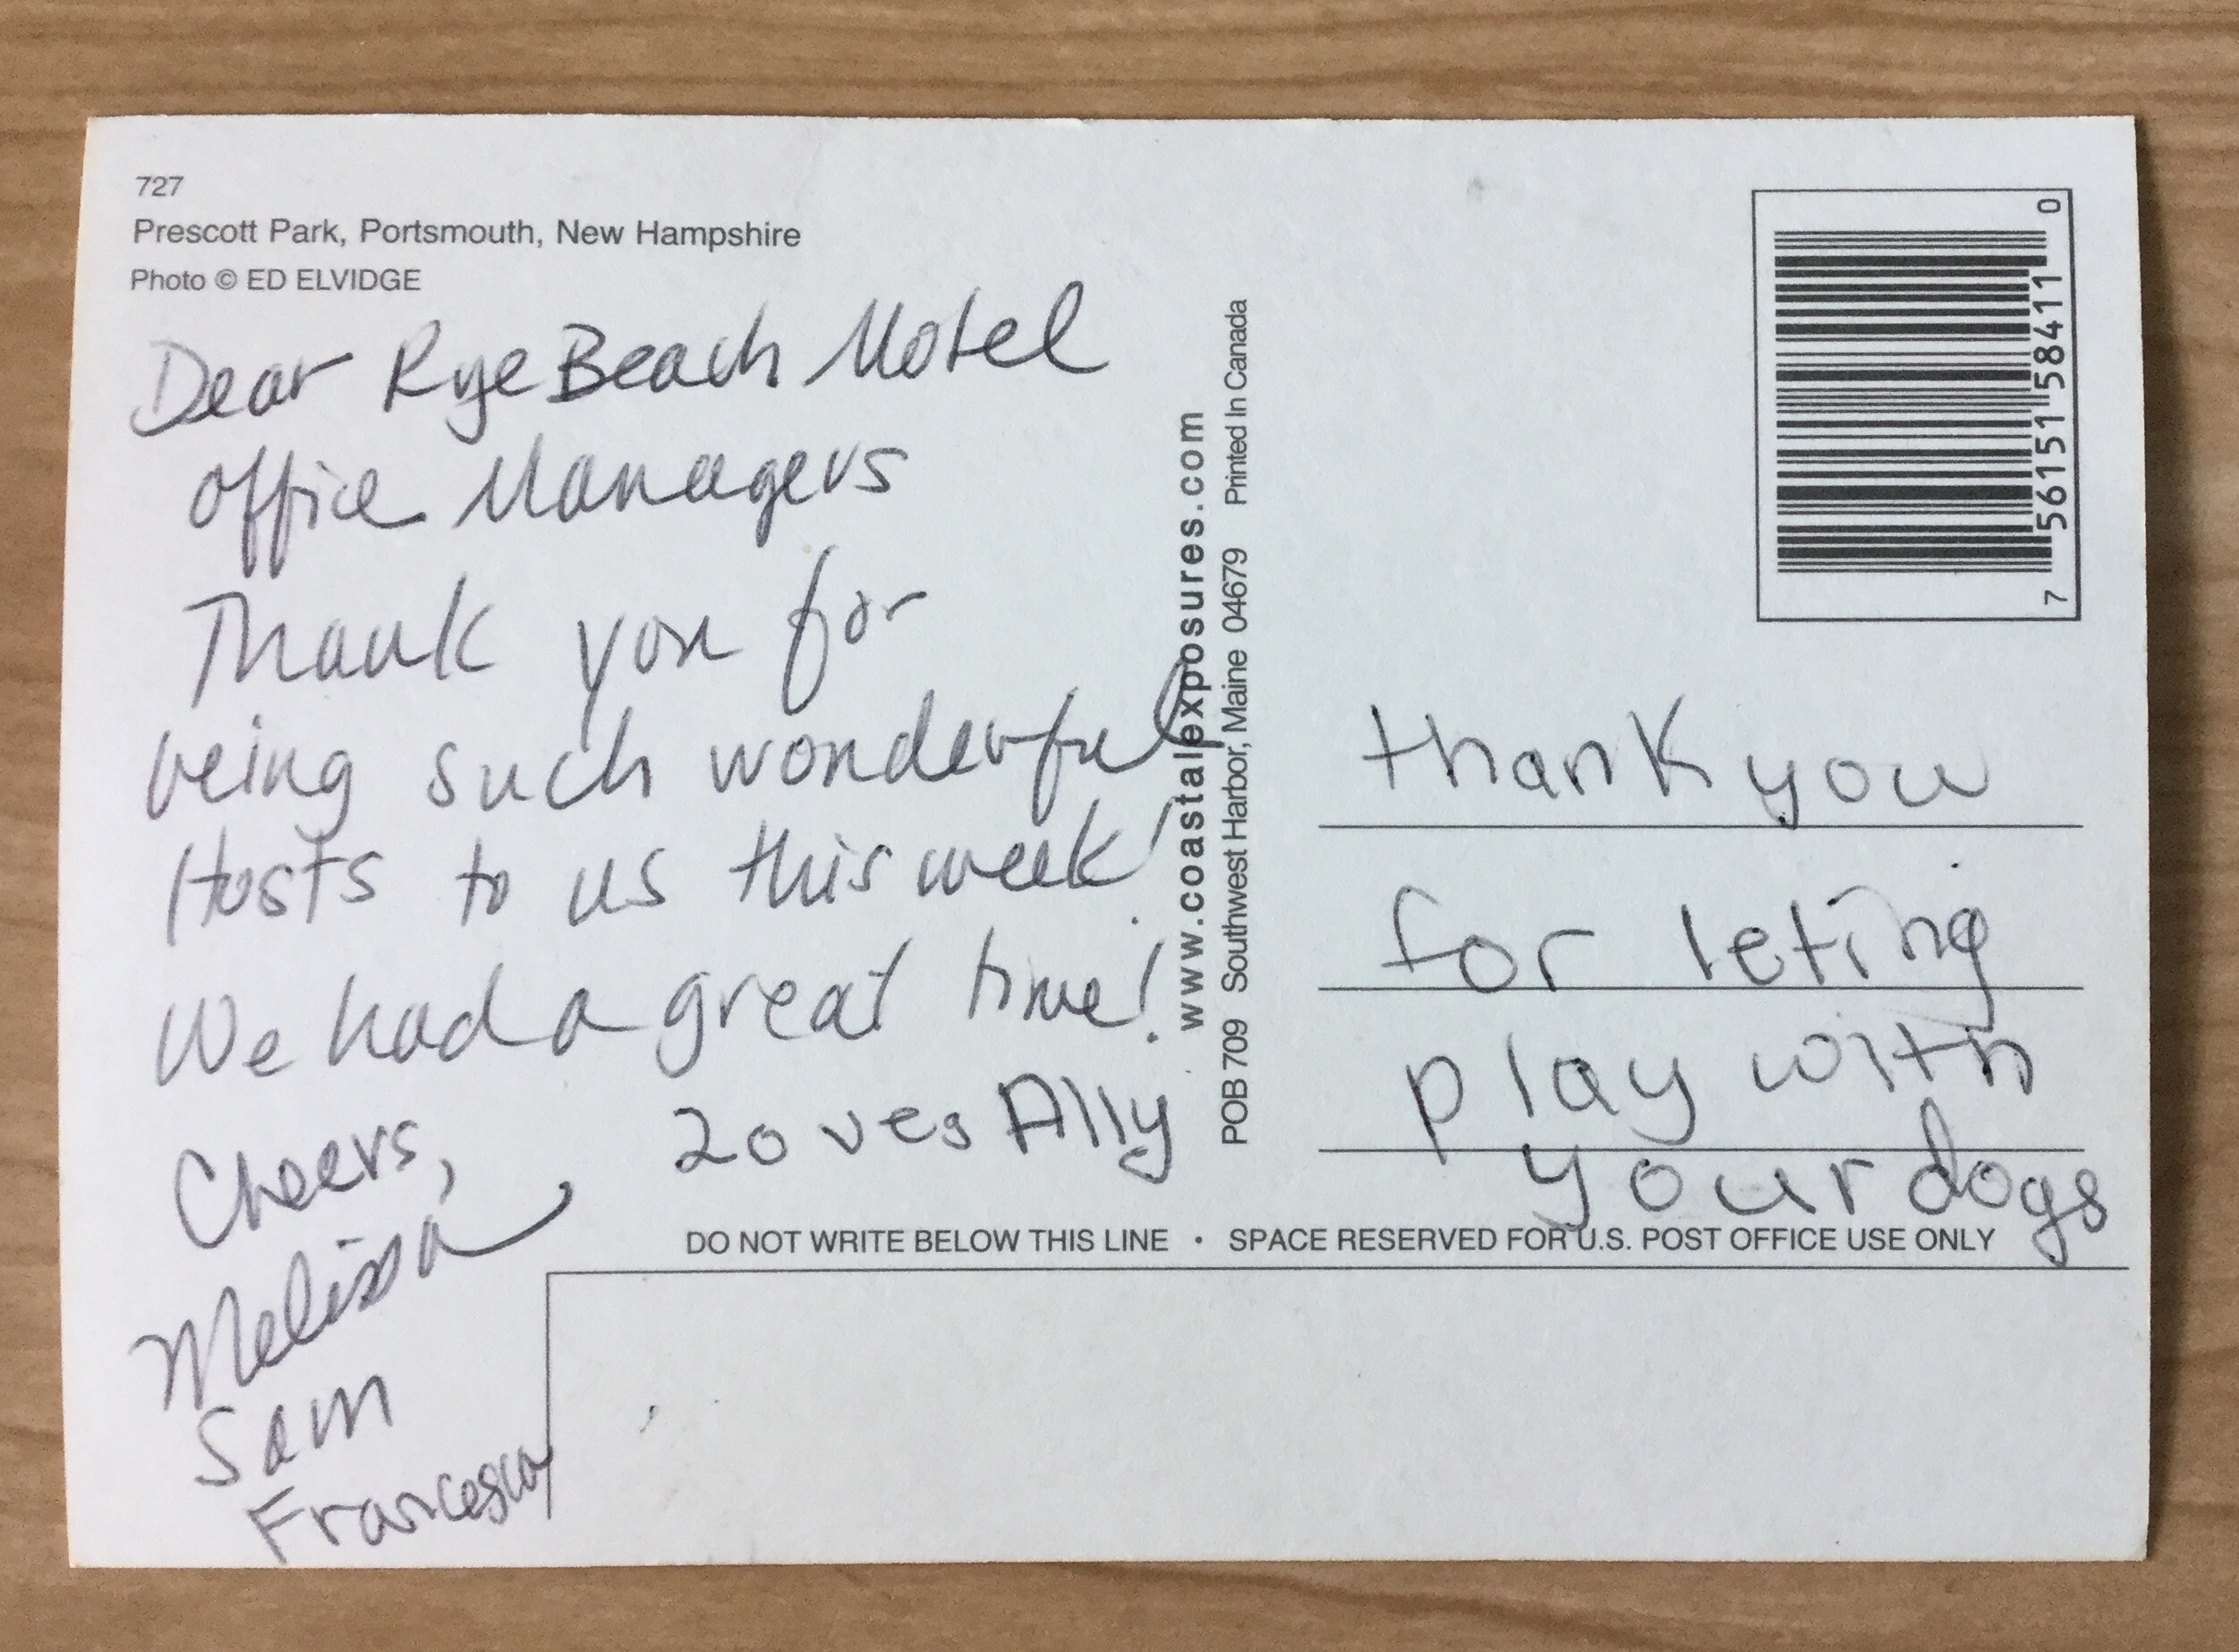 727
Prescott Park, Portsmouth, New Hampshire
Photo © ED ELVIDGE
Dear Rye Beach Motel
office Managers
Thank you for
being such wonderful
Hosts to us this week!
We had a great time!
Cheers,
Melissa
Sam
Francesca
Loves Ally
www.coastalexposures.com
POB 709 Southwest Harbor, Maine 04679 Printed In Canada
7 56151 58411 0
thank you
for leting
play with
your dogs
DO NOT WRITE BELOW THIS LINE • SPACE RESERVED FOR U.S. POST OFFICE USE ONLY